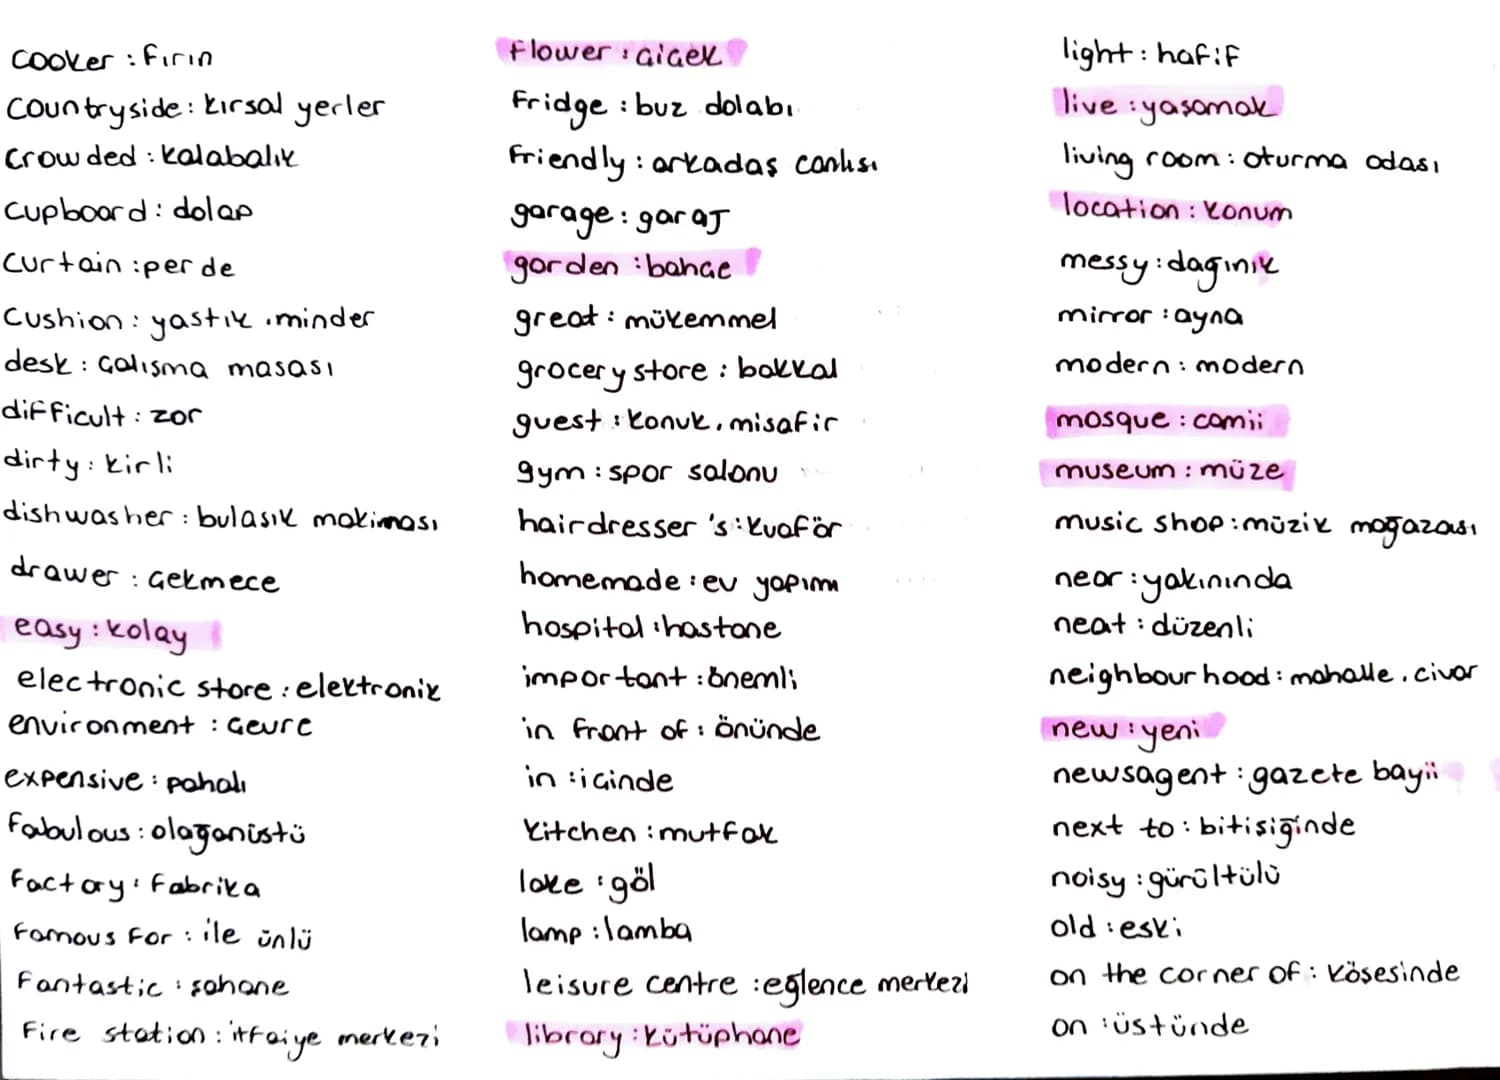 cooker : fırın
countryside : kırsal yerler
crowded : kalabalık
cupboard : dolap
curtain : perde
cushion : yastık , minder
desk : çalışma masası
difficult : zor
dirty : kirli
dishwasher : bulaşık makiması
drawer : çekmece
easy : kolay
electronic store : elektronik
environment : çevre
expensive : pahalı
fabulous : olağanüstü
factory : fabrika
famous for : ile ünlü
fantastic : şahane
fire station : itfaiye merkezi
flower : çiçek
fridge : buz dolabı
friendly : arkadaş canlısı
garage : garaj
garden : bahçe
great : mükemmel
grocery store : bakkal
guest : konuk , misafir
gym : spor salonu
hairdresser 's : kuaför
homemade : ev yapımı
hospital : hastane
important : önemli
in front of : önünde
in : içinde
kitchen : mutfak
lake : göl
lamp : lamba
leisure centre : eğlence merkezi
library : kütüphane
light : hafif
live : yaşamak
living room : oturma odası
location : konum
messy : dağınık
mirror : ayna
modern : modern
mosque : camii
museum : müze
music shop : müzik mağazası
near : yakınında
neat : düzenli
neighbourhood : mahalle , civar
new : yeni
newsagent : gazete bayii
next to : bitişiğinde
noisy : gürültülü
old : eski
on the corner of : köşesinde
on : üstünde